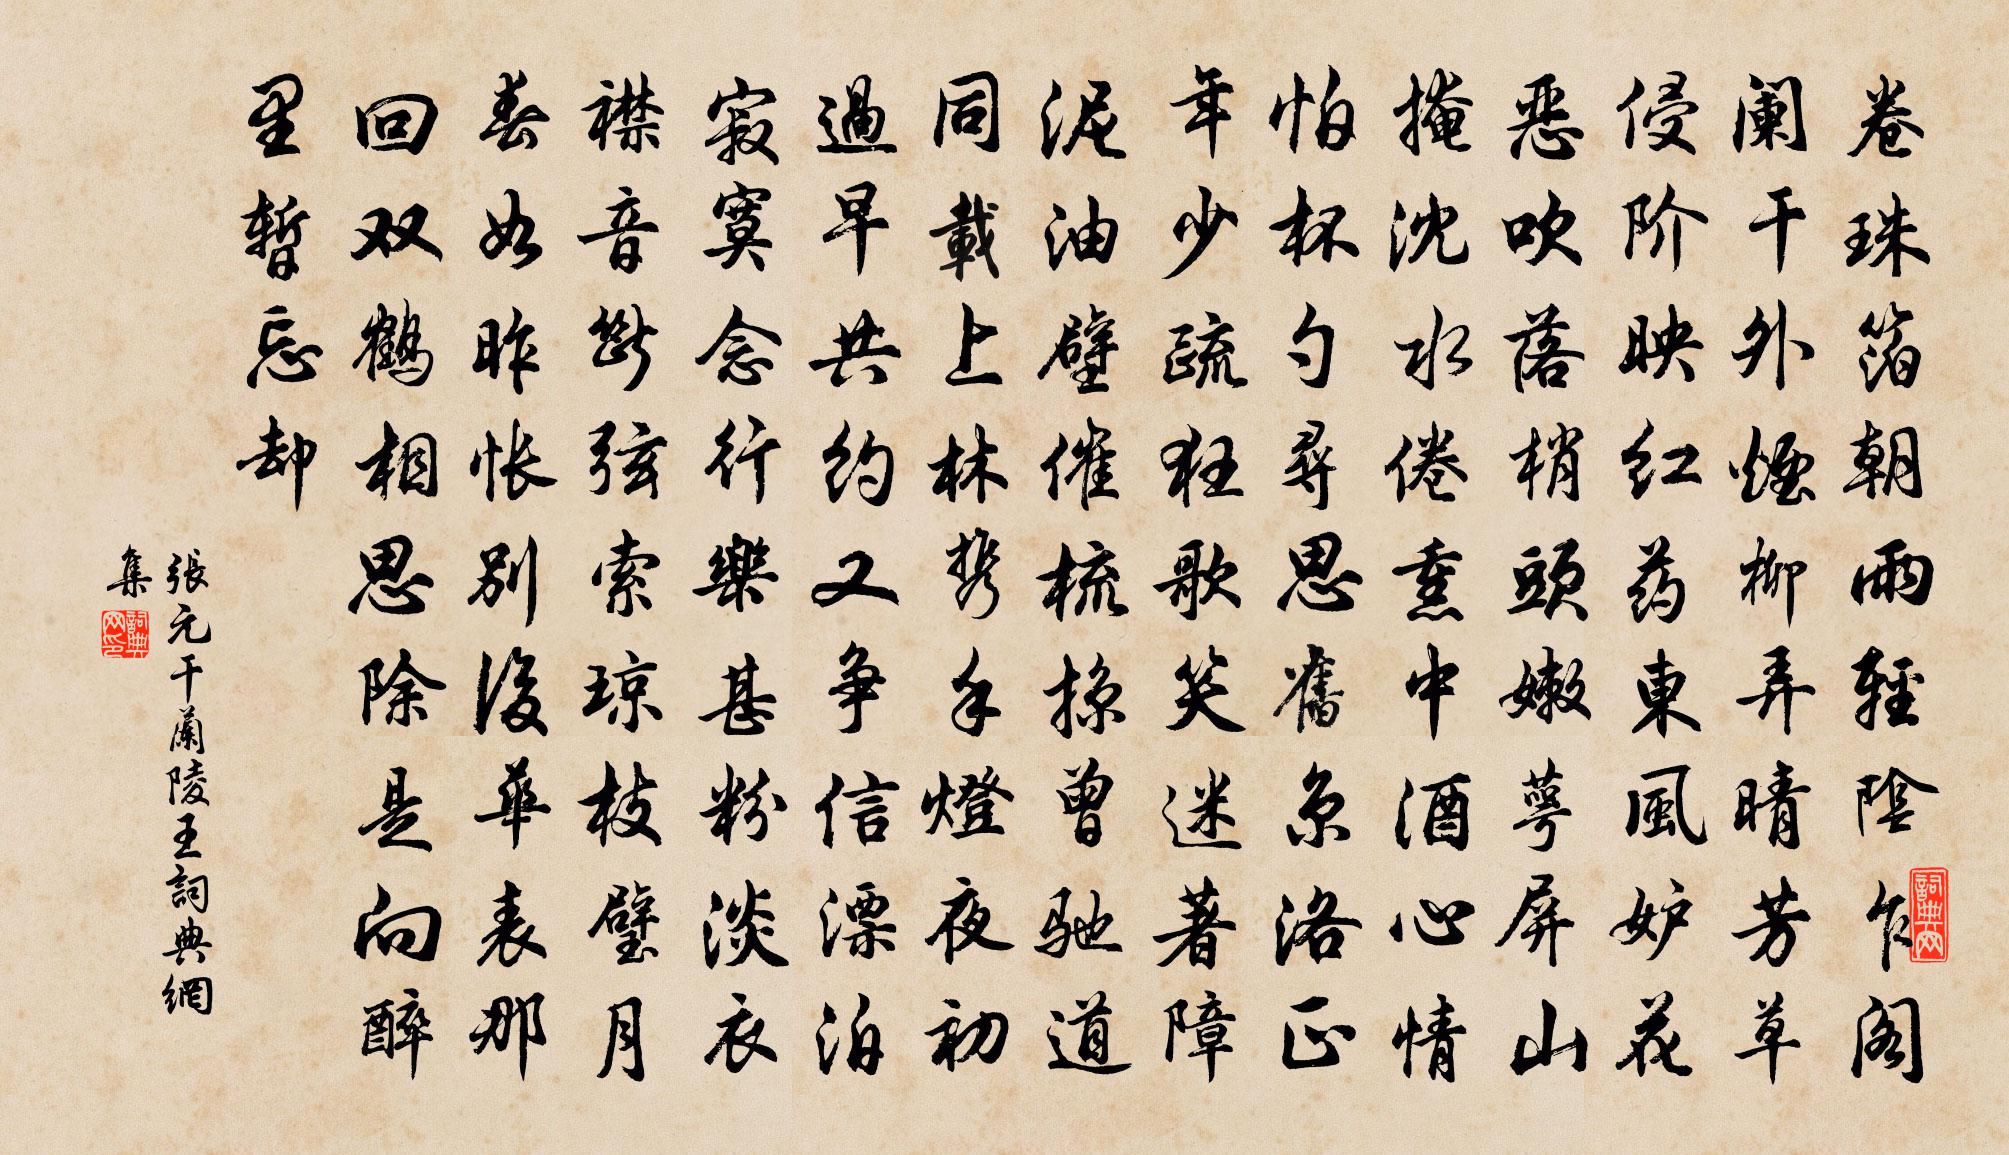 卷珠箔朝雨輕陰乍阁
阑干外煙柳弄晴芳草
侵阶映红药東風妒花
恶吹落梢頭嫩萼屏山
掩沈水倦熏中酒心情
怕杯勺尋思舊京洛正
年少疏狂歌笑迷著障
泥油壁催梳掠曾馳道
同載上林携手燈夜初
過早共约又争信漂泊
寂寞念行樂甚粉淡衣
襟音断弦索琼枝璧月
春如昨怅别後華表那
回双鹤相思除是向醉
里暫忘却
張元干蘭陵王詞典網
集
詞典网
詞典网印